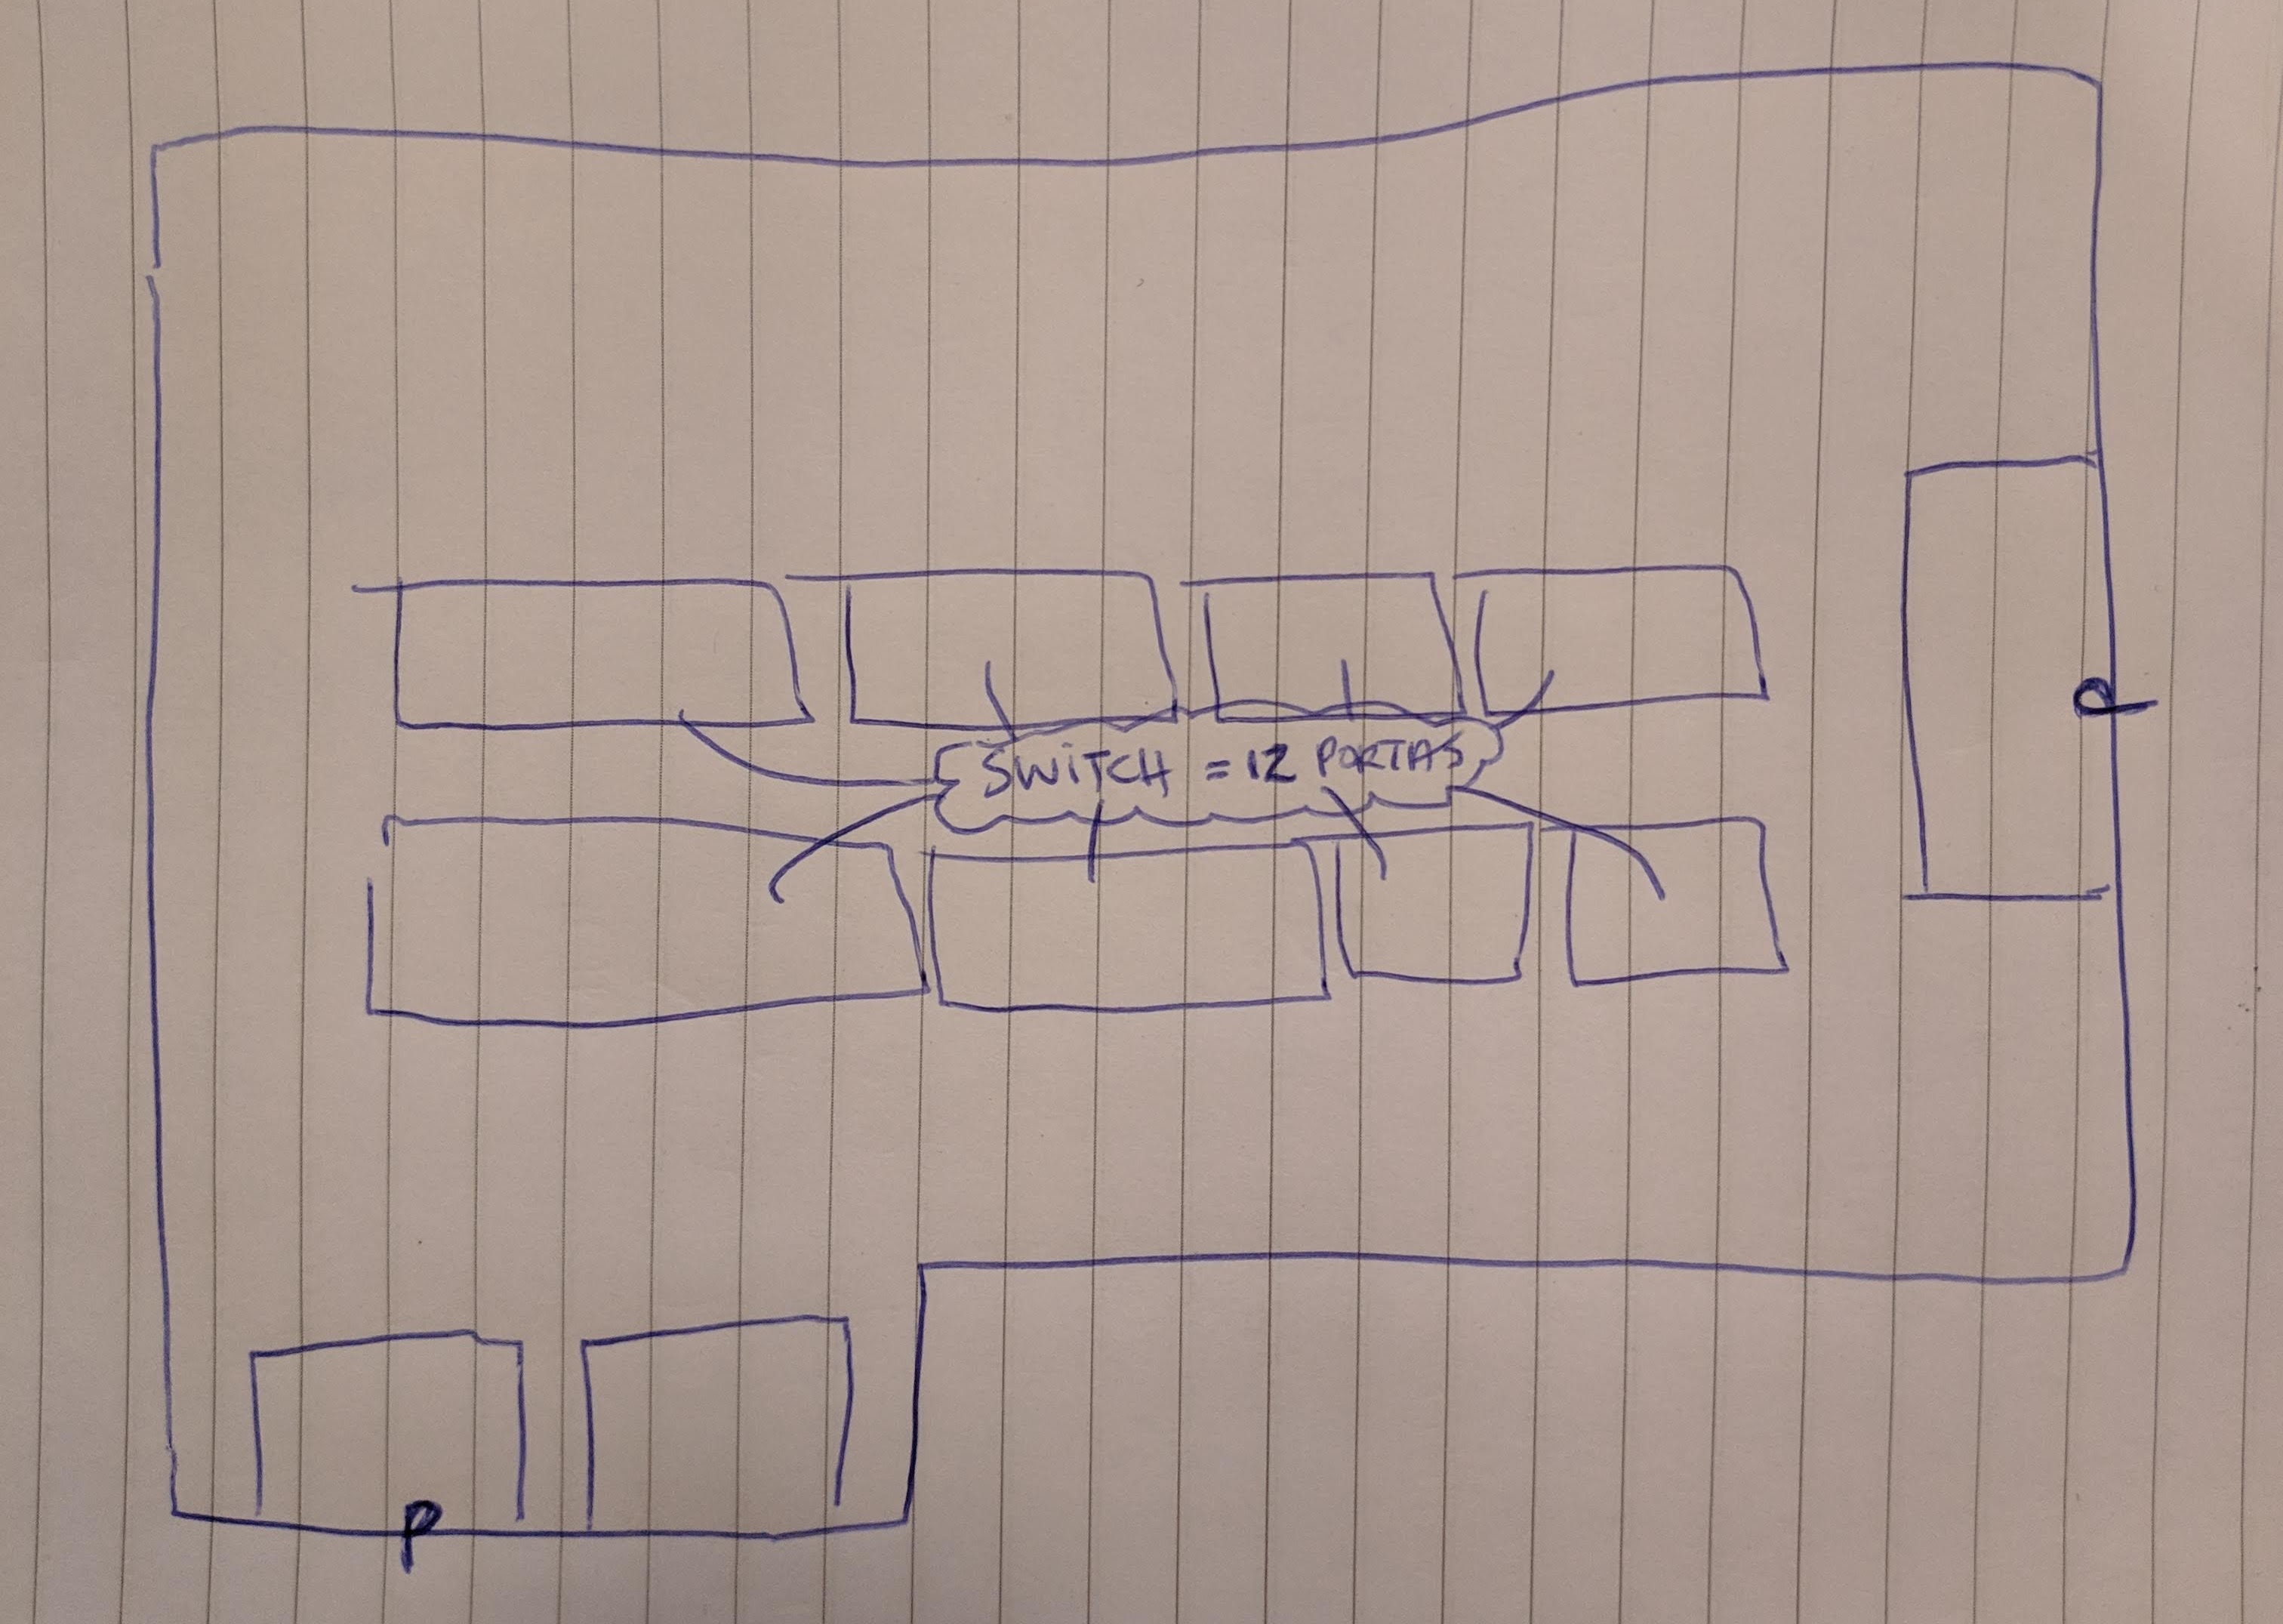 SWITCH = 12 PORTAS
P
P